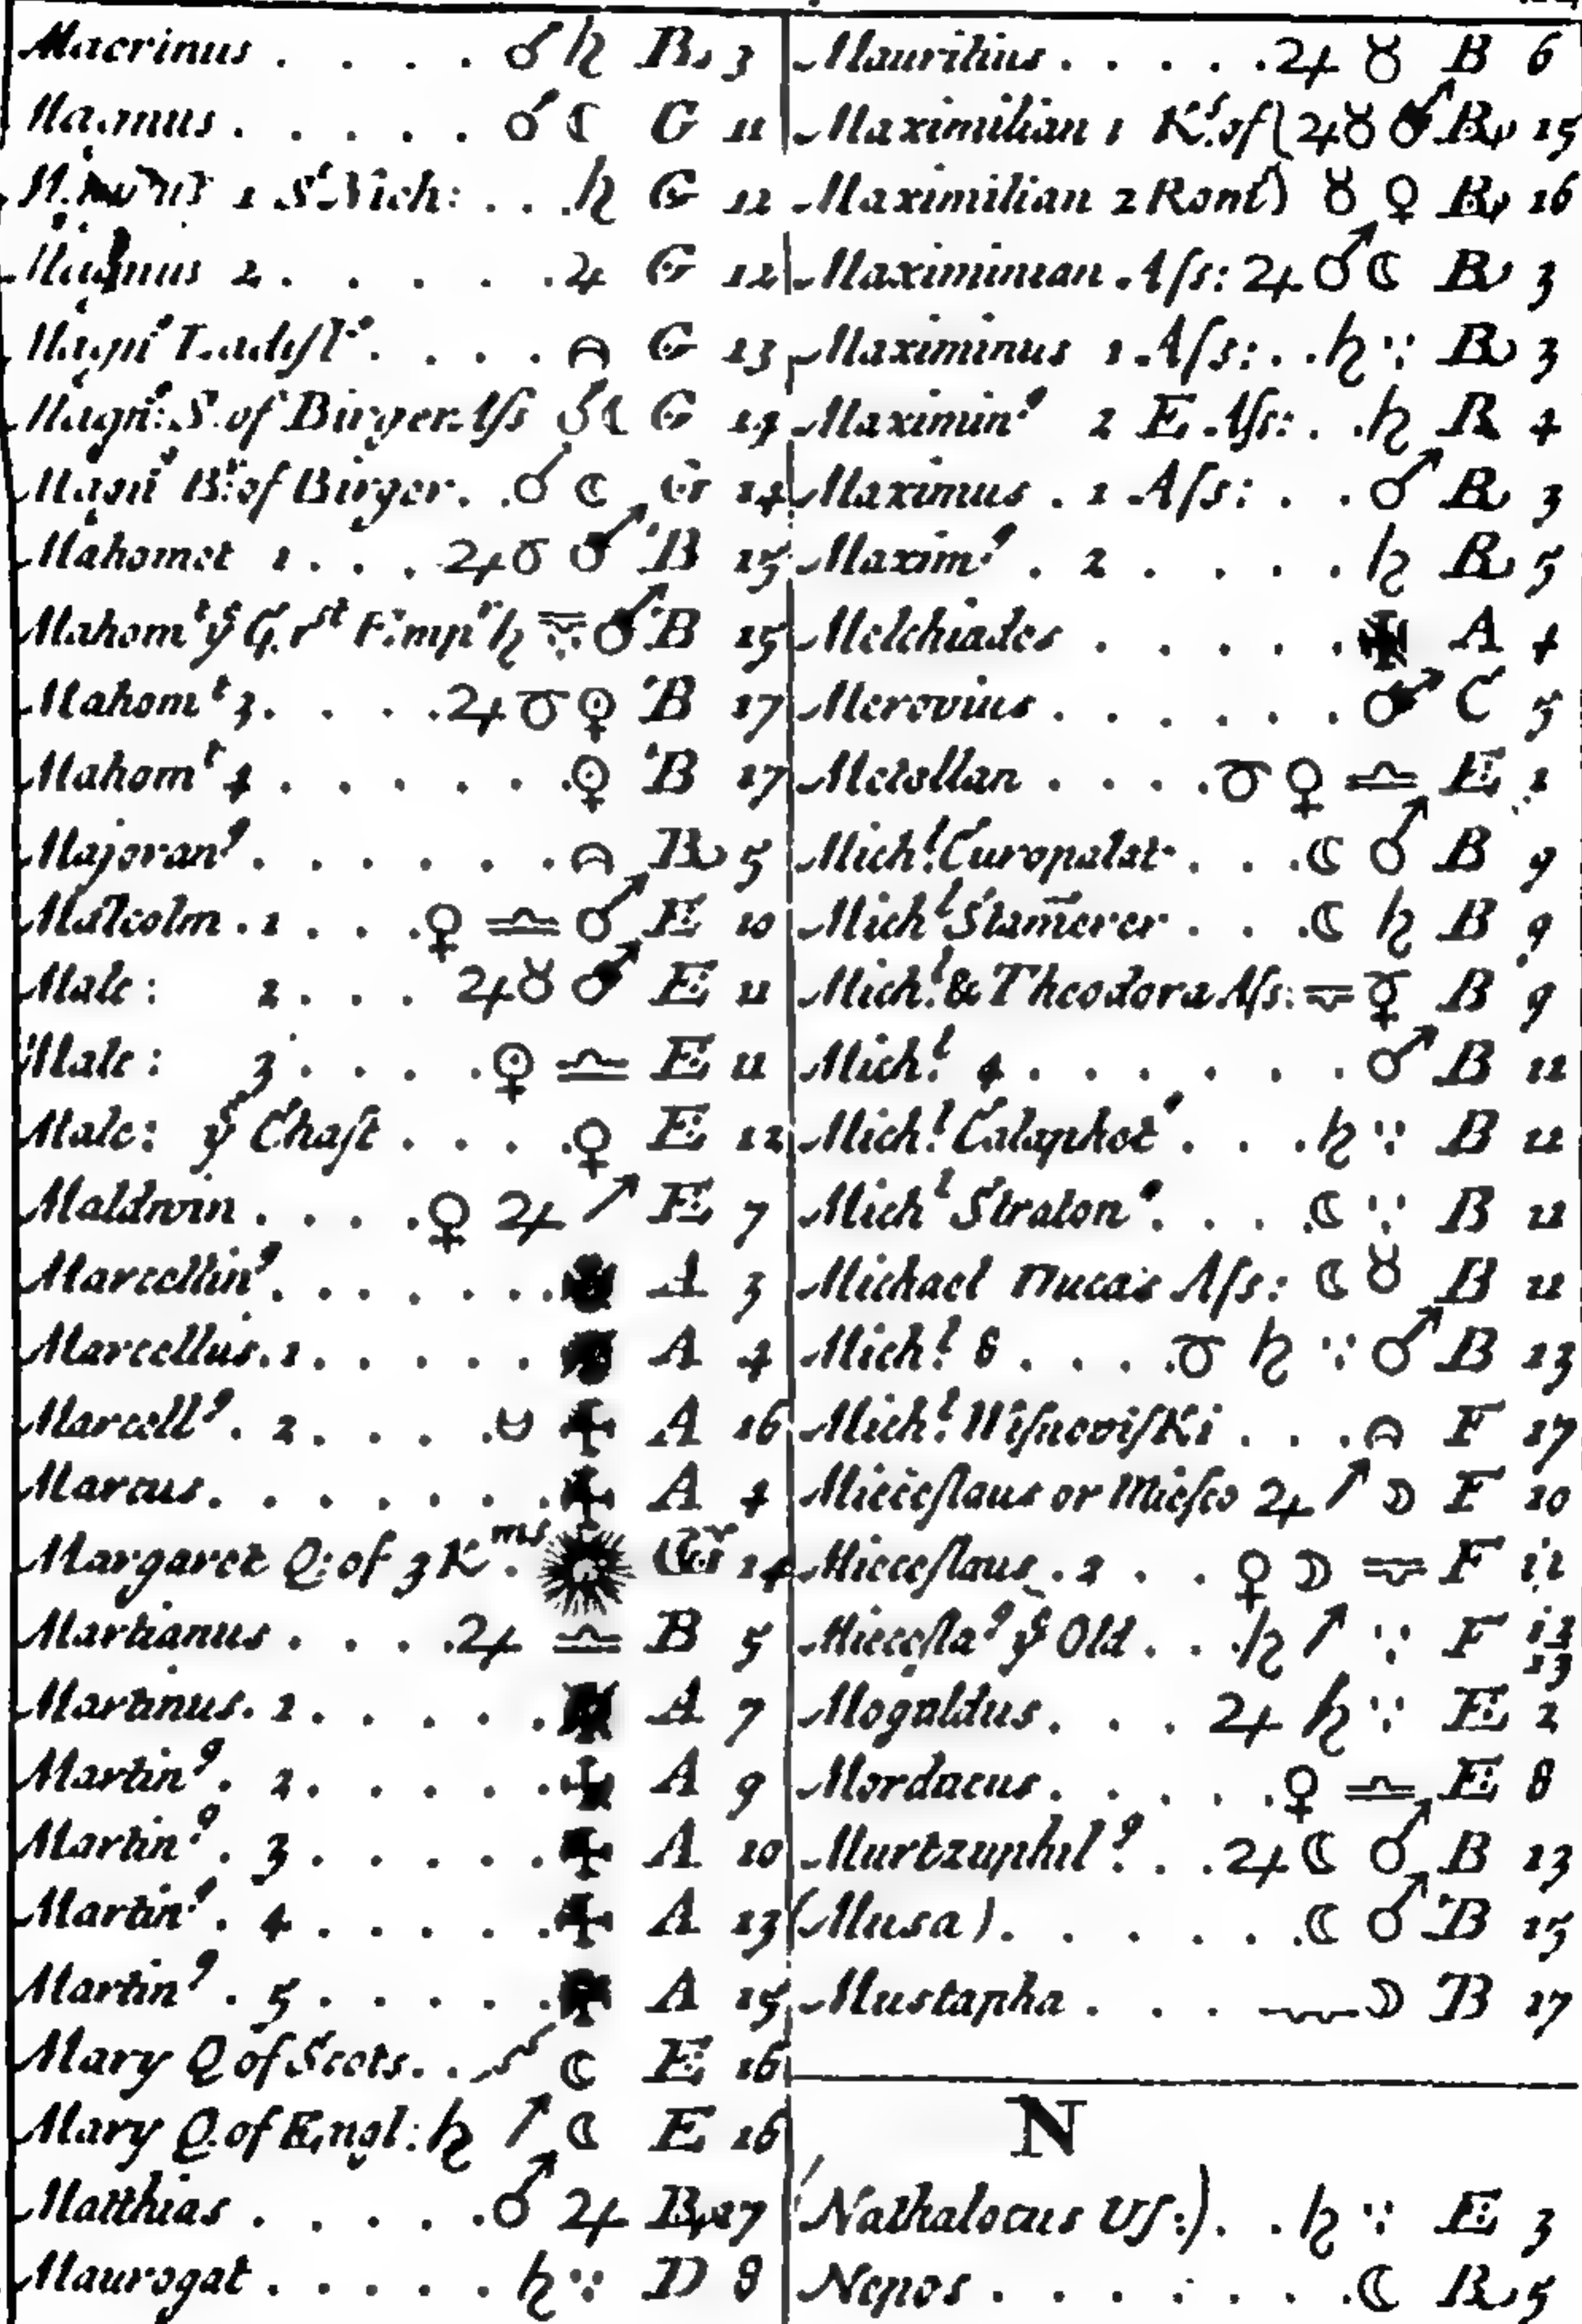 Macrinus . . . . ♂ ♄ B 3
Magnus . . . . . ♂ ☾ G 11
1 St. Nich: . . . ♄ G 12
Magnus 2 . . . . . ♃ G 12
Magn⁹ Ladisl⁹ . . . . G 13
Magn: S. of Birger Aſs ♂ ☾ G 14
Magn Br: of Birger . . ♂ ☾ G 14
Mahomet 1 . . . ♃ ♉ ♂ B 15
Mahomt ye G.rst Emp ♄ ♂ B 15
Mahomt 3 . . . . ♃ ♀ B 17
Mahomt 4 . . . . . . ♀ B 17
Majoran⁹ . . . . . . B 5
Malcolm . 1 . . . ♀ ♎ ♂ E 10
Malc: 2 . . . ♃ ♉ ♂ E 11
Malc: 3 . . . . ♀ ♎ E 11
Malc: ye Chaſt . . . . ♀ E 12
Maldwin . . . . ♀ ♃ ↗ E 7
Marcellin⁹ . . . . . . . A 3
Marcellus . 1 . . . . . A 4
Marcell⁹ . 2 . . . . ✠ A 16
Marcus . . . . . . . ✠ A 4
Margaret Q: of 3 Kms . G 14
Martianus . . . . ♃ ♎ B 5
Martinus . 1 . . . . . ✠ A 7
Martin⁹ . 2 . . . . . ✠ A 9
Martin⁹ . 3 . . . . . ✠ A 10
Martin⁹ . 4 . . . . . ✠ A 13
Martin⁹ . 5 . . . . . ✠ A 15
Mary Q of Scots . . ☾ E 16
Mary Q. of Engl: ♄ ↗ ☾ E 16
Matthias . . . . . ♂ ♃ B 17
Maurogat . . . . . ♄ ∵ D 8
Mauritius . . . . . ♃ ♉ B 6
Maximilian 1 Ks. of ( ♃ ♉ ♂ B 15
Maximilian 2 Roms) ♉ ♀ B 16
Maximinian Aſs: ♃ ♂ ☾ B 3
Maximinus 1 Aſs: . . ♄ ∵ B 3
Maximin⁹ 2 E Aſs: . . ♄ B 4
Maximus . 1 Aſs: . . ♂ B 3
Maxim⁹ . 2 . . . . . ♄ B 5
Melchiades . . . . . ✠ A 4
Merovius . . . . . . ♂ C 5
Metellan . . . . ♀ ♎ E 1
Michl. Curopalat . . . ☾ ♂ B 9
Michl Stam̄erer . . . ☾ ♄ B 9
Michl. & Theodora Aſs: B 9
Michl. 4 . . . . . . ♂ B 11
Michl. Calaphet⁹ . . . ♄ ∵ B 11
Michl Straton⁹ . . . ☾ ∵ B 11
Michael Ducas Aſs: ☾ ♉ B 11
Michl. 8 . . . . ♄ ∵ ♂ B 13
Michl. WiſnoviſKi . . . F 17
Mieceſlaus or Mieſco ♃ ↗ ☽ F 10
Mieceſlaus . 2 . . . ♀ ☽ F 12
Mieceſla⁹ ye Old . . . ♄ ↗ ∵ F 12 13
Mogaldus . . . ♃ ♄ ∵ E 2
Mordacus . . . . . ♀ ♎ E 8
Murtzuphil⁹ . . . ♃ ☾ ♂ B 13
(Musa) . . . . . . ☾ ♂ B 15
Mustapha . . . ☽ B 17
N
(Nathalocus Uſ:) . . ♄ ∵ E 3
Nepos . . . . . . . ☾ B 5